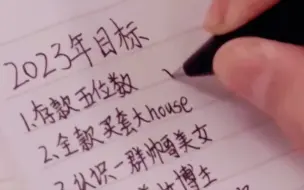 2023年目标
1.存款五位数
2.全款买套大house
3.认识一群帅哥美女
博主